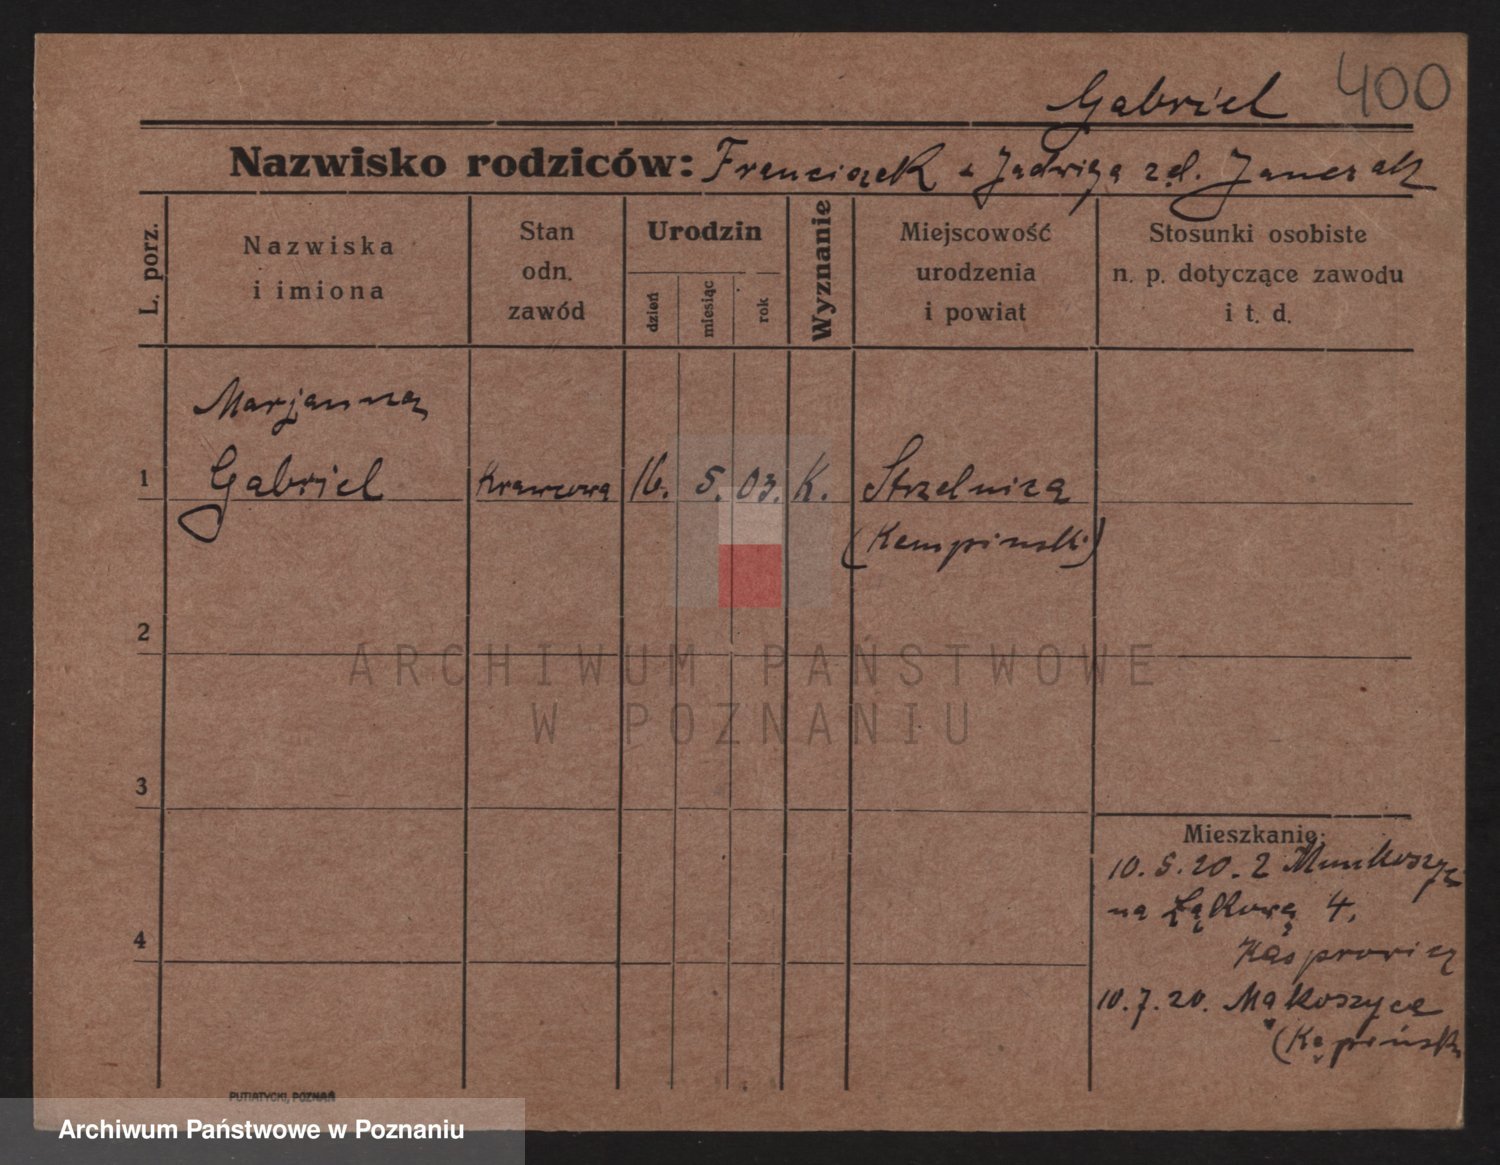 Gabriel 400
Nazwisko rodziców: Franciszek a Jadwiga zd. Janczak
L. porz.
Nazwiska
i imiona
Stan
odn.
zawód
Urodzin
dzień
miesiąc
rok
Wyznanie
Miejscowość
urodzenia
i powiat
Stosunki osobiste
n. p. dotyczące zawodu
i t. d.
Marjanna
1 Gabriel Krawcowa 16. 5. 03. K. Strzelnica
(Kempinski)
2
ARCHIWUM PAŃSTWOWE
W POZNANIU
3
Mieszkanie:
10. 5. 20. z
na Łąkową 4.
4
Kasprowicz
10. 7. 20. Mąkoszyce
(Kępiński
PUTIATYCKI, POZNAŃ
Archiwum Państwowe w Poznaniu